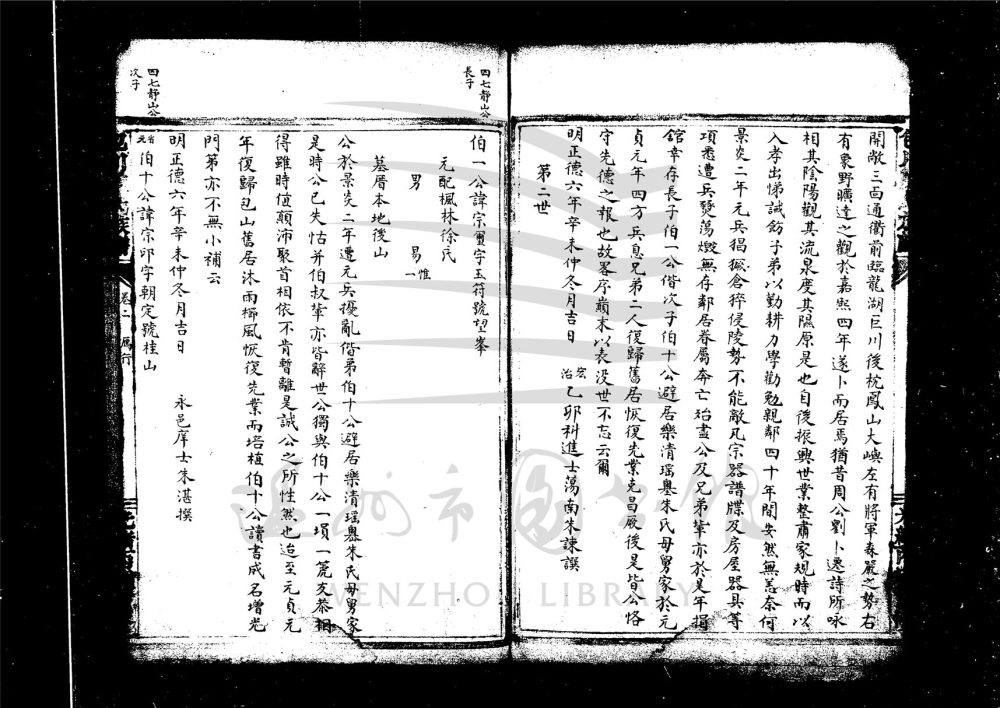 開敞三面通衢前臨龍湖巨川後枕鳳山大嶼左有將軍森嚴之勢右
有象野曠達之觀於嘉熙四年遂卜而居焉猶昔周公劉卜遷詩所咏
相其陰陽觀其流泉度其隰原是也自後振興世業整肅家規時而以
入孝出悌誠飭子弟以勤耕力學勸勉親鄰四十年間安然無恙奈何
景炎二年元兵猖獗倉猝侵陵勢不能敵凡宗器譜牒及房屋器具等
項悉遭兵燹蕩燬無存鄰居眷屬奔亡殆盡公及兄弟輩亦於是年捐
舘幸存長子伯一公偕次子伯十公避居樂清瑶嶴朱氏母舅家於元
貞元年四方兵息兄弟二人復歸舊居恢復先業克昌厥後是皆公恪
守先德之報也故畧序巔末以表没世不忘云爾
明正德六年辛未仲冬月吉日
宏治乙卯科進士蕩南朱諫譔
第二世
四七靜山公長子
伯一公諱宗璽字玉符號望峯
元配楓林徐氏
男 易 惟一
墓厝本地後山
公於景炎二年遭元兵擾亂偕弟伯十公避居樂清瑶嶴朱氏母舅家
是時公已失怙并伯叔輩亦皆辭世公獨與伯十公一塤一箎友恭相
得雖時值顛沛聚首相依不肯暫離是誠公之所性然也迨至元貞元
年復歸包山舊居沐雨櫛風恢復先業而培植伯十公讀書成名增光
門第亦不無小補云
明正德六年辛未仲冬月吉日
永邑庠士朱湛撰
四七靜山公次子
伯十公諱宗印字朝定號桂山
卷二
鳳行
温州市图书馆
WENZHOU LIBRARY